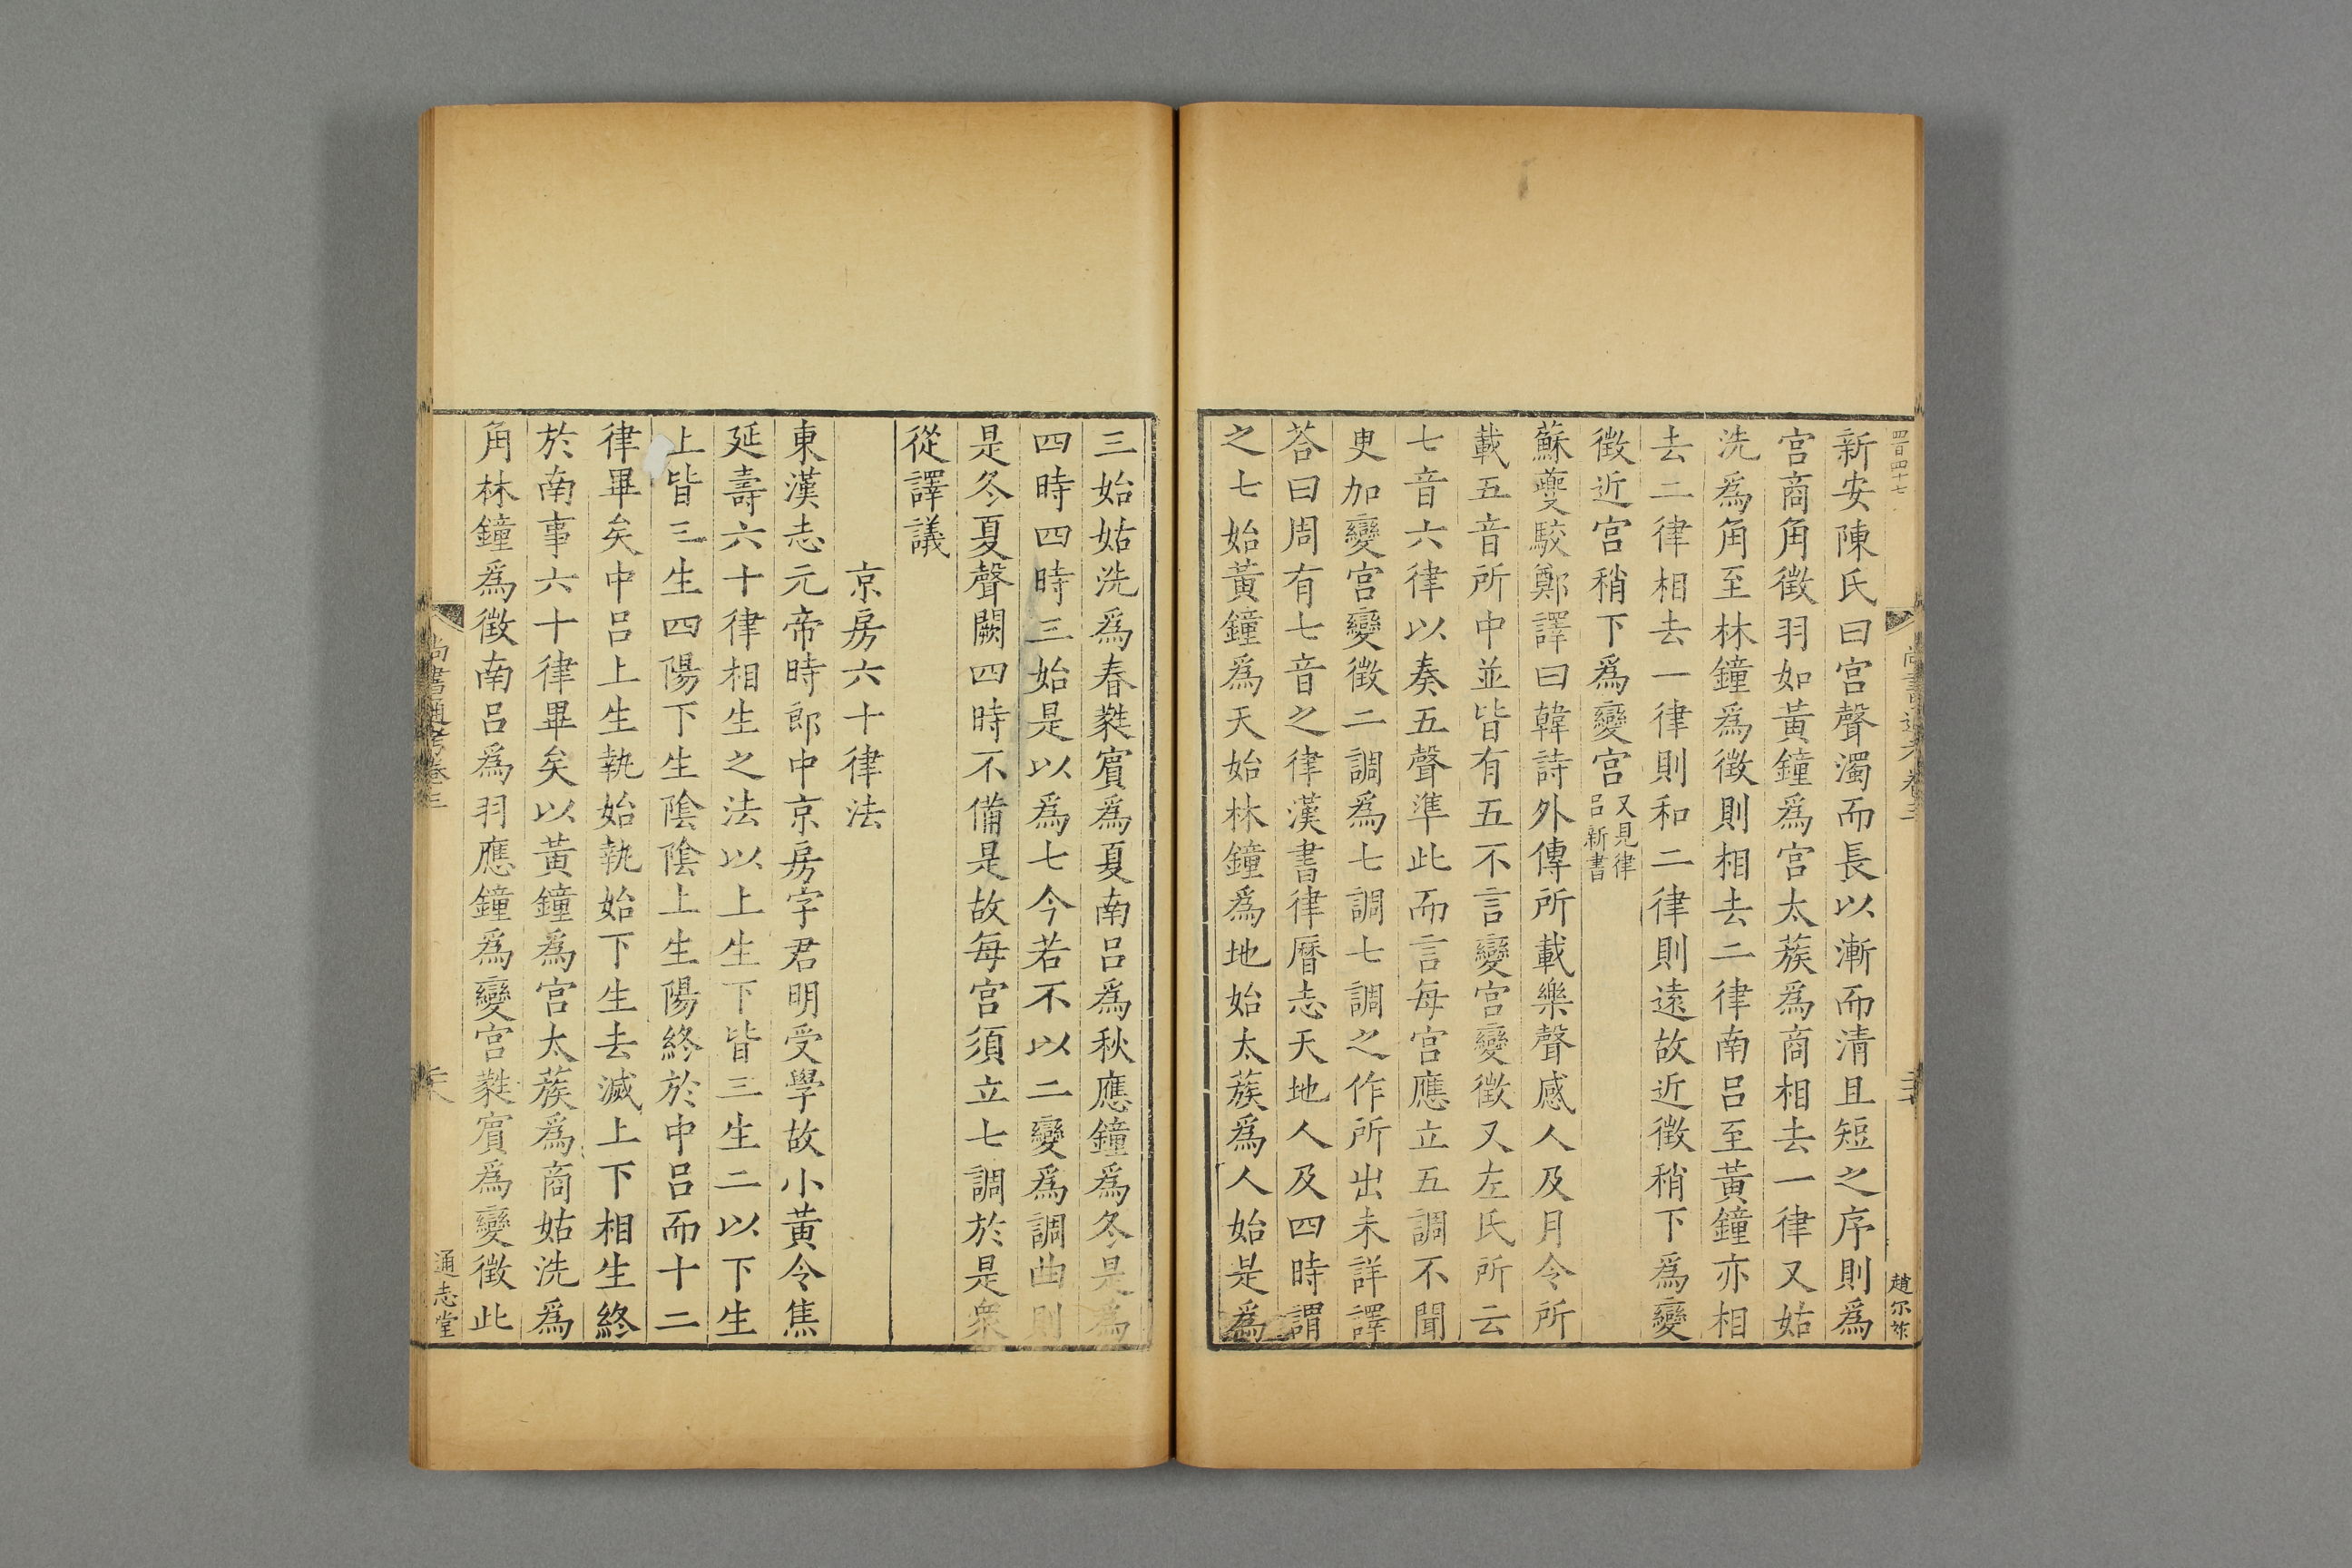 四百四十七
新安陳氏曰宮聲濁而長以漸而清且短之序則爲
宮商角徵羽如黃鐘爲宮太蔟爲商相去一律又姑
洗爲角至林鐘爲徵則相去二律南呂至黃鐘亦相
去二律相去一律則和二律則遠故近徵稍下爲變
徵近宮稍下爲變宮又見律
呂新書
蘇夔駮鄭譯曰韓詩外傳所載樂聲感人及月令所
載五音所中並皆有五不言變宮變徵又左氏所云
七音六律以奏五聲準此而言每宮應立五調不聞
更加變宮變徵二調爲七調七調之作所出未詳譯
荅曰周有七音之律漢書律曆志天地人及四時謂
之七始黃鐘爲天始林鐘爲地始太蔟爲人始是爲
三始姑洗爲春蕤賓爲夏南呂爲秋應鐘爲冬是爲
四時四時三始是以爲七今若不以二變爲調曲則
是冬夏聲闕四時不備是故每宮須立七調於是衆
從譯議
京房六十律法
東漢志元帝時郎中京房字君明受學故小黃令焦
延壽六十律相生之法以上生下皆三生二以下生
上皆三生四陽下生陰陰上生陽終於中呂而十二
律畢矣中呂上生執始執始下生去滅上下相生終
於南事六十律畢矣以黃鐘爲宮太蔟爲商姑洗爲
角林鐘爲徵南呂爲羽應鐘爲變宮蕤賓爲變徵此
尚書通考卷三
通志堂